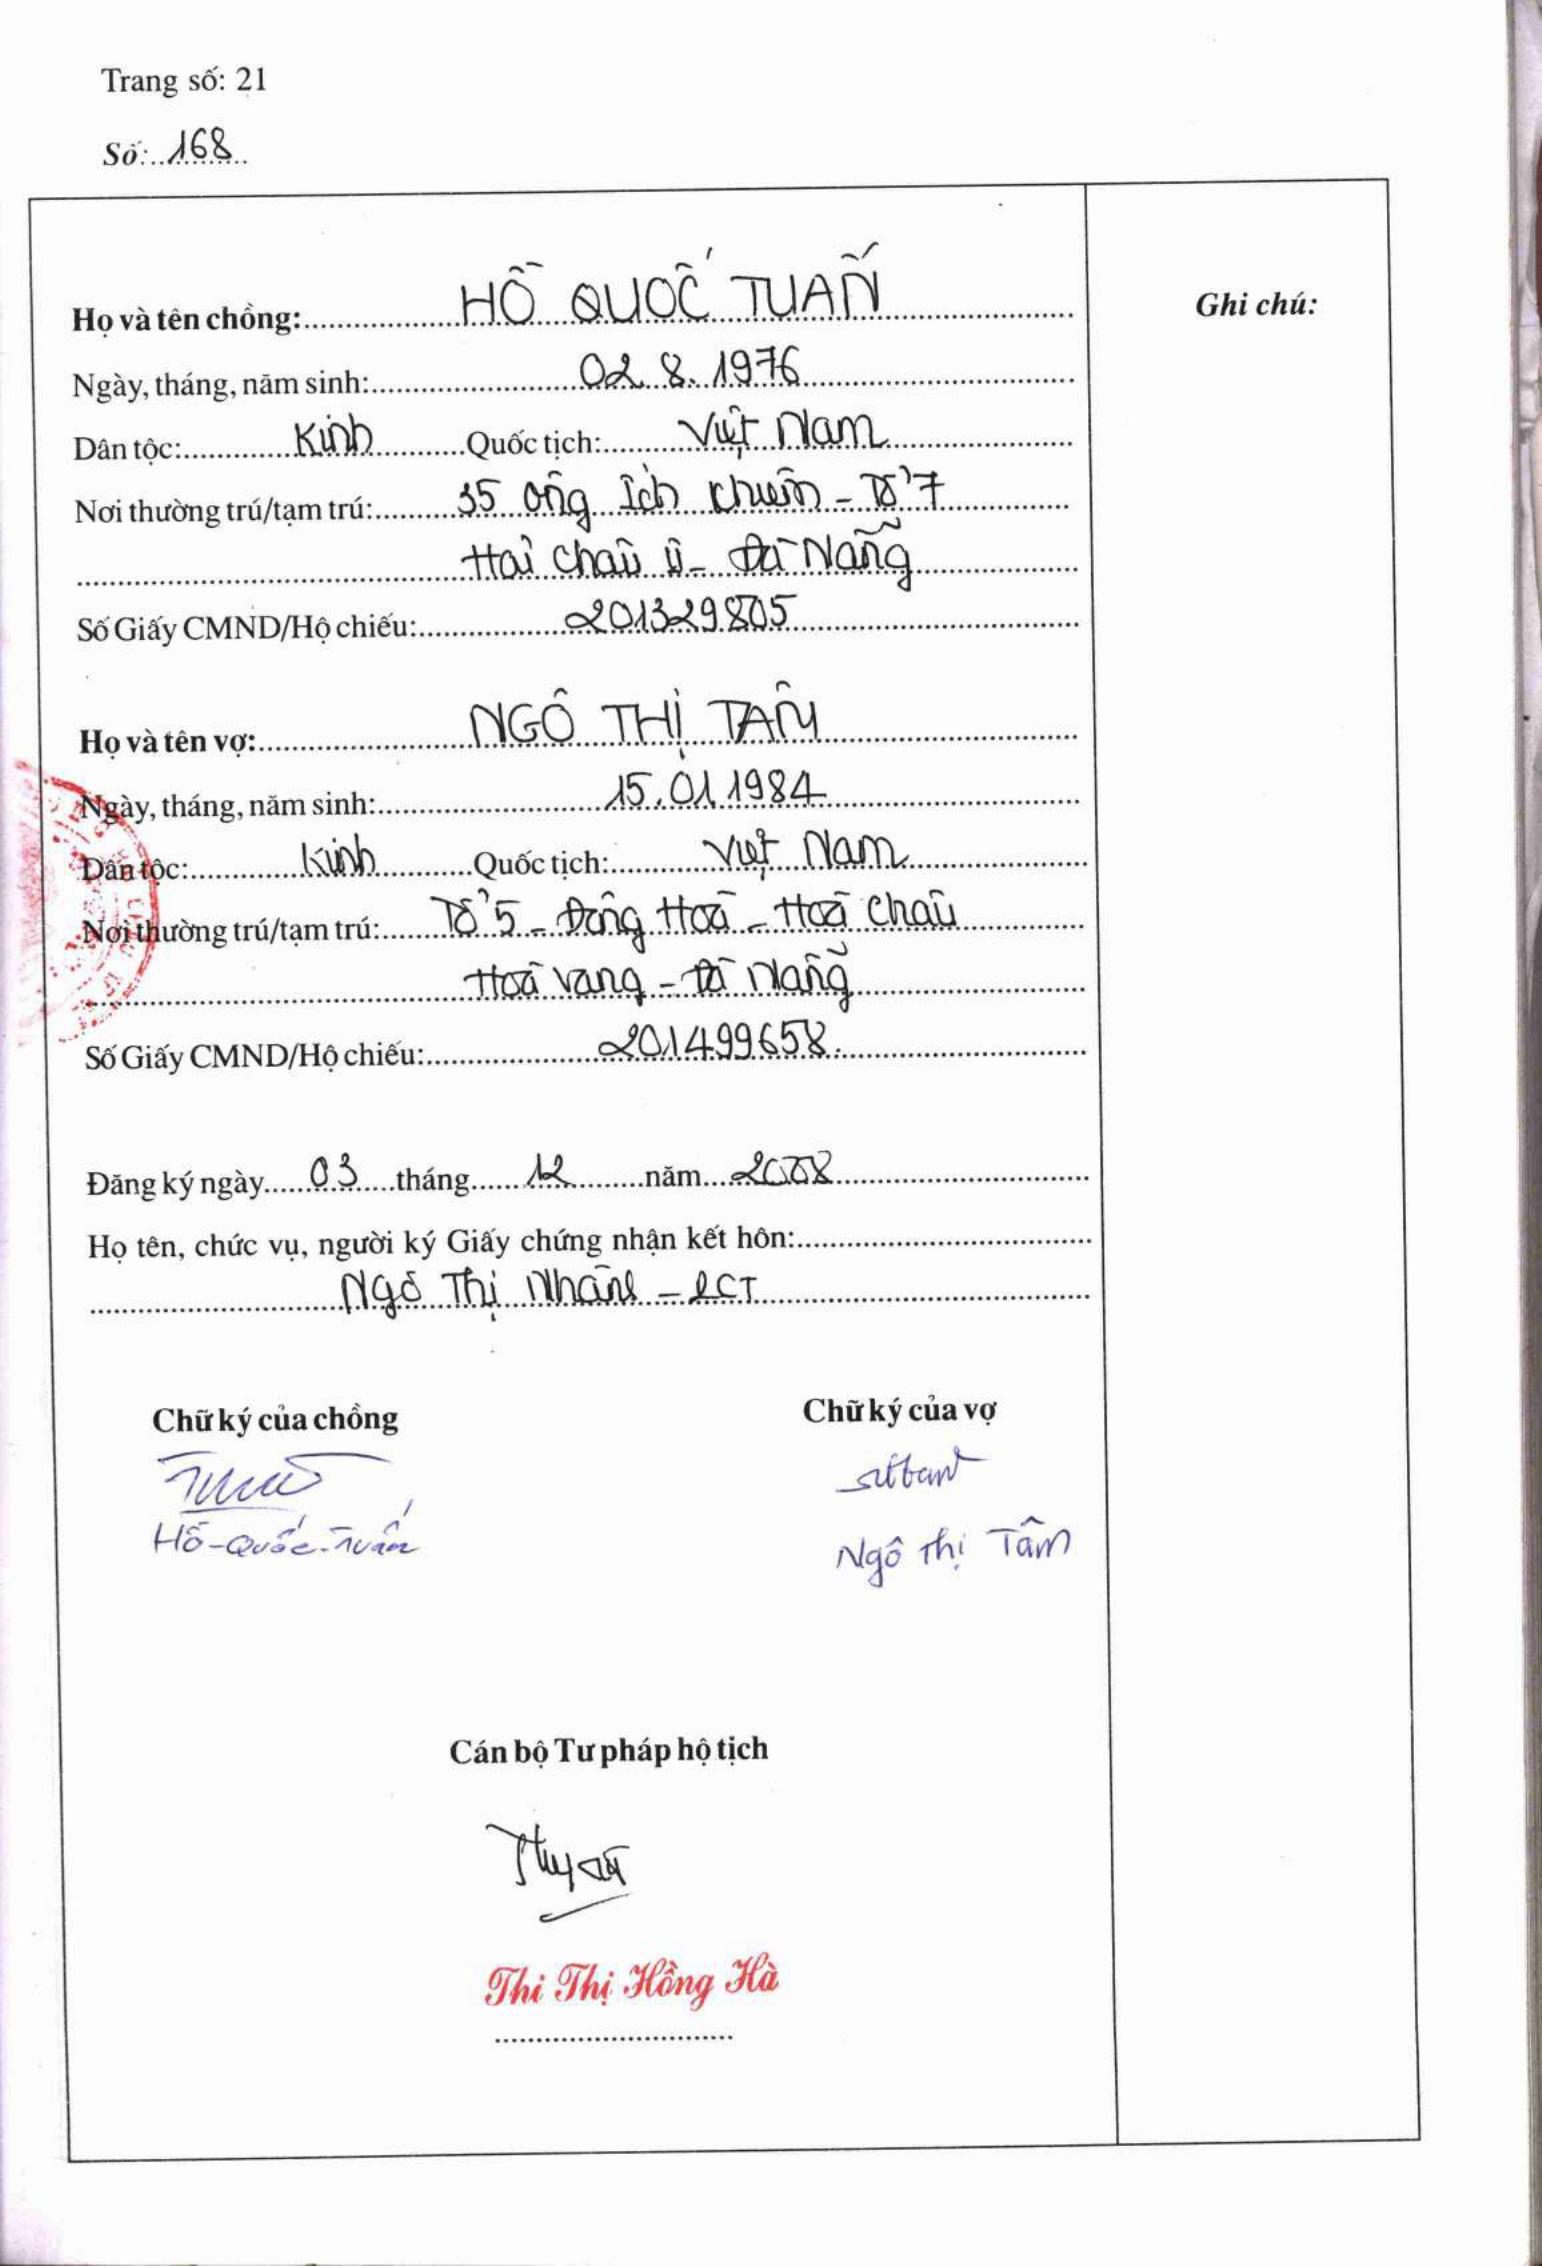 Trang số: 21
Số: 168
Họ và tên chồng: HỒ QUỐC TUẤN
Ghi chú:
Ngày, tháng, năm sinh: 02.8.1976
Dân tộc: Kinh Quốc tịch: Việt Nam
Nơi thường trú/tạm trú: 35 Ông Ích Khiêm - Tổ 7
Hải Châu II - Đà Nẵng
Số Giấy CMND/Hộ chiếu: 201329805
Họ và tên vợ: NGÔ THỊ TÂM
Ngày, tháng, năm sinh: 15.01.1984
Dân tộc: Kinh Quốc tịch: Việt Nam
Nơi thường trú/tạm trú: Tổ 5 - Đông Hoà - Hoà Châu
Hoà Vang - Đà Nẵng
Số Giấy CMND/Hộ chiếu: 201499658
Đăng ký ngày 03 tháng 12 năm 2008
Họ tên, chức vụ, người ký Giấy chứng nhận kết hôn:
Ngô Thị - PCT
Chữ ký của chồng Chữ ký của vợ
Hồ-Quốc-Tuấn Ngô Thị Tâm
Cán bộ Tư pháp hộ tịch
Thi Thị Hồng Hà